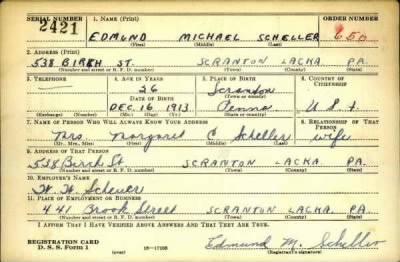 SERIAL NUMBER 1. NAME (Print) ORDER NUMBER
2421 EDMUND MICHAEL SCHELLER 650
(First) (Middle) (Last)
2. ADDRESS (Print)
538 BIRCH ST. SCRANTON LACKA. PA.
(Number and street or R. F. D. number) (Town) (County) (State)
3. TELEPHONE 4. AGE IN YEARS 5. PLACE OF BIRTH 6. COUNTRY OF CITIZENSHIP
— 26 Scranton
DATE OF BIRTH (Town or county)
DEC. 16 1913 Penna U.S.A.
(Exchange) (Number) (Mo.) (Day) (Yr.) (State or country)
7. NAME OF PERSON WHO WILL ALWAYS KNOW YOUR ADDRESS 8. RELATIONSHIP OF THAT PERSON
Mrs Margaret C Scheller wife
(Mr., Mrs., Miss) (First) (Middle) (Last)
9. ADDRESS OF THAT PERSON
538 Birch St SCRANTON LACKA. PA.
(Number and street or R. F. D. number) (Town) (County) (State)
10. EMPLOYER'S NAME
11. PLACE OF EMPLOYMENT OR BUSINESS
441 Brook Street SCRANTON LACKA. PA.
(Number and street or R. F. D. number) (Town) (County) (State)
I AFFIRM THAT I HAVE VERIFIED ABOVE ANSWERS AND THAT THEY ARE TRUE.
REGISTRATION CARD
D. S. S. Form 1 (over) 16—17105 Edmund M. Scheller
(Registrant's signature)